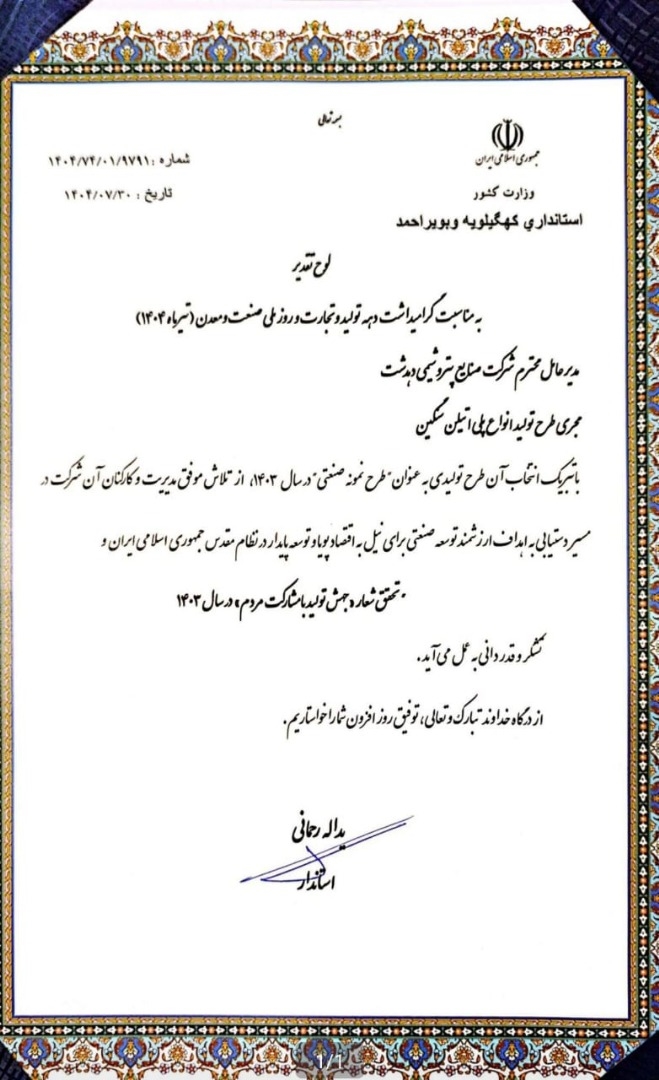 بسمه تعالی
جمهوری اسلامی ایران
وزارت کشور
استانداري کهگیلویه وبویراحمد
شماره :۱۴۰۴/۷۴/۰۱/۹۷۹۱
تاریخ : ۱۴۰۴/۰۷/۳۰
لوح تقدیر
به مناسبت گرامیداشت دهه تولید و تجارت و روز ملی صنعت و معدن (تیرماه ۱۴۰۴)
مدیر عامل محترم شرکت صنایع پتروشیمی دهدشت
مجری طرح تولید انواع پلی اتیلن سنگین
با تبریک انتخاب آن طرح تولیدی به عنوان "طرح نمونه صنعتی" در سال ۱۴۰۳، از تلاش موفق مدیریت و کارکنان آن شرکت در
مسیر دستیابی به اهداف ارزشمند توسعه صنعتی برای نیل به اقتصاد پویا و توسعه پایدار در نظام مقدس جمهوری اسلامی ایران و
"تحقق شعار «جهش تولید با مشارکت مردم» در سال ۱۴۰۳
تشکر و قدردانی به عمل می آید.
از درگاه خداوند تبارک و تعالی، توفیق روز افزون شما را خواستاریم.
یداله رحمانی
استاندار
1/1